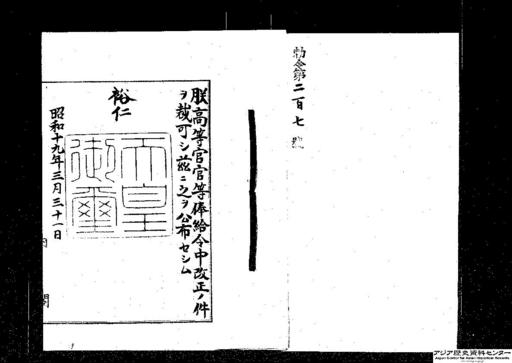 勅令第二百七號
朕高等官官等俸給令中改正ノ件
ヲ裁可シ茲ニ之ヲ公布セシム
裕仁
天皇
御璽
昭和十九年三月三十一日
内閣
アジア歴史資料センター
Japan Center for Asian Historical Records